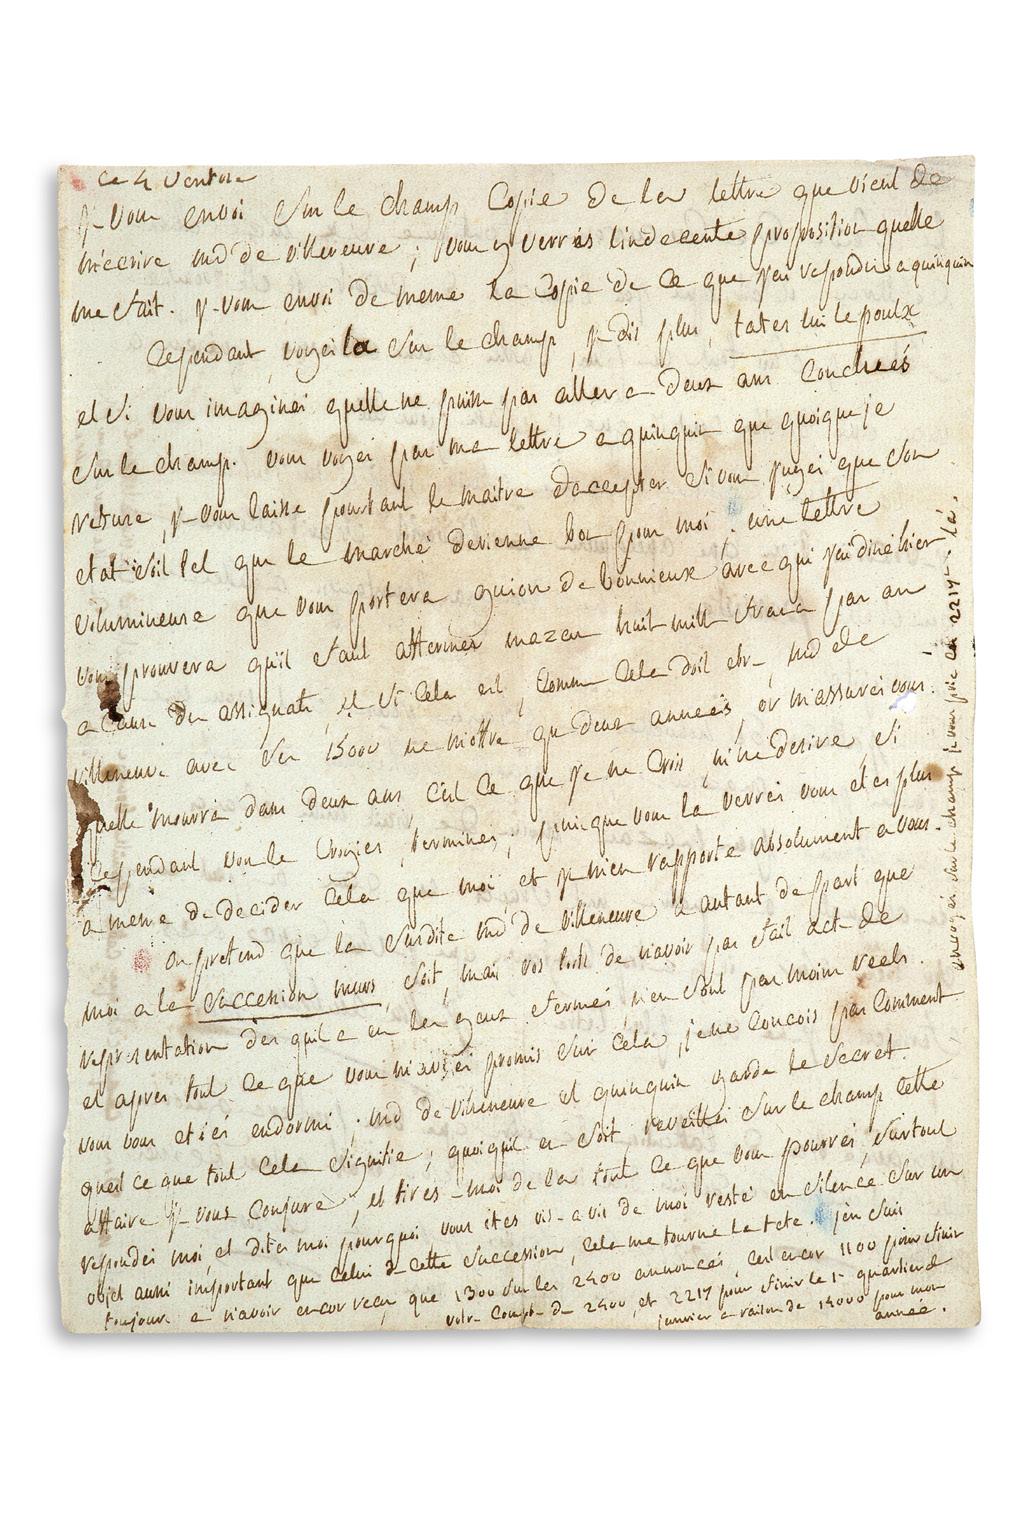 ce 4 Ventose
je vous envoi sur le champ Copie de la lettre que vient de
m'écrire md de villeneuve ; vous y verrés l'indecente proposition quelle
me fait. je vous envoi de meme la Copie de ce que j'ai repondu a quinquin
Cependant, voyez la sur le champ, je dis plus, tates lui le poulx
et si vous imaginéz quelle ne puisse pas aller a deux ans Conclueés
sur le champ. vous voyez par ma lettre a quinquin que quoique je
refuse, je vous laisse pourtant le maitre d'accepter si vous jugez que son
etat soit tel que le marché devienne bon pour moi. une lettre
volumineuse que vous portera guion de bonnieux avec qui j'ai diné hier
vous prouvera qu'il faut affermer mazan huit mille francs par an
a cause des assignats, et si cela est, comme cela doit etre, md de
villeneuve avec ses 1500 ne m'offre que deux années, or m'assurez vous
quelle mourra dans deux ans, c'est ce que je ne crois, ni ne desire, si
cependant vous le croyez, terminez ; puisque vous la verrés vous etes plus
a meme de decider cela que moi et je m'en rapporte absolument a vous.
on pretend que la susdite md de villeneuve a autant de part que
moi a la succession murs, soit, mais vos torts de n'avoir pas fait acte de
representation des qu'il a eu les yeux fermés, n'en sont pas moins reels.
et apres tout ce que vous m'aviéz promis sur cela, je ne concois pas comment
vous vous etiés endormi. md de villeneuve et quinquin garde le secret.
quest ce que tout cela signifie ; quoiqu'il en soit reveilléz sur le champ cette
affaire je vous conjure, et tirés-moi de la tout ce que vous pourréz, surtout
repondez moi, et dites moi pourquoi vous etes vis-a-vis de moi resté en silence sur un
objet aussi important que celui de cette succession, cela me tourne la tete. j'en suis
toujours a n'avoir encor recu que 1300 sur les 2400 annoncés, c'est encor 1100 pour finir
votre compte de 2400, et 2217 pour finir le 1er quartier de
janvier a raison de 14000 pour mon
année.
envoyez sur le champ je vous prie ces 2217tt là.